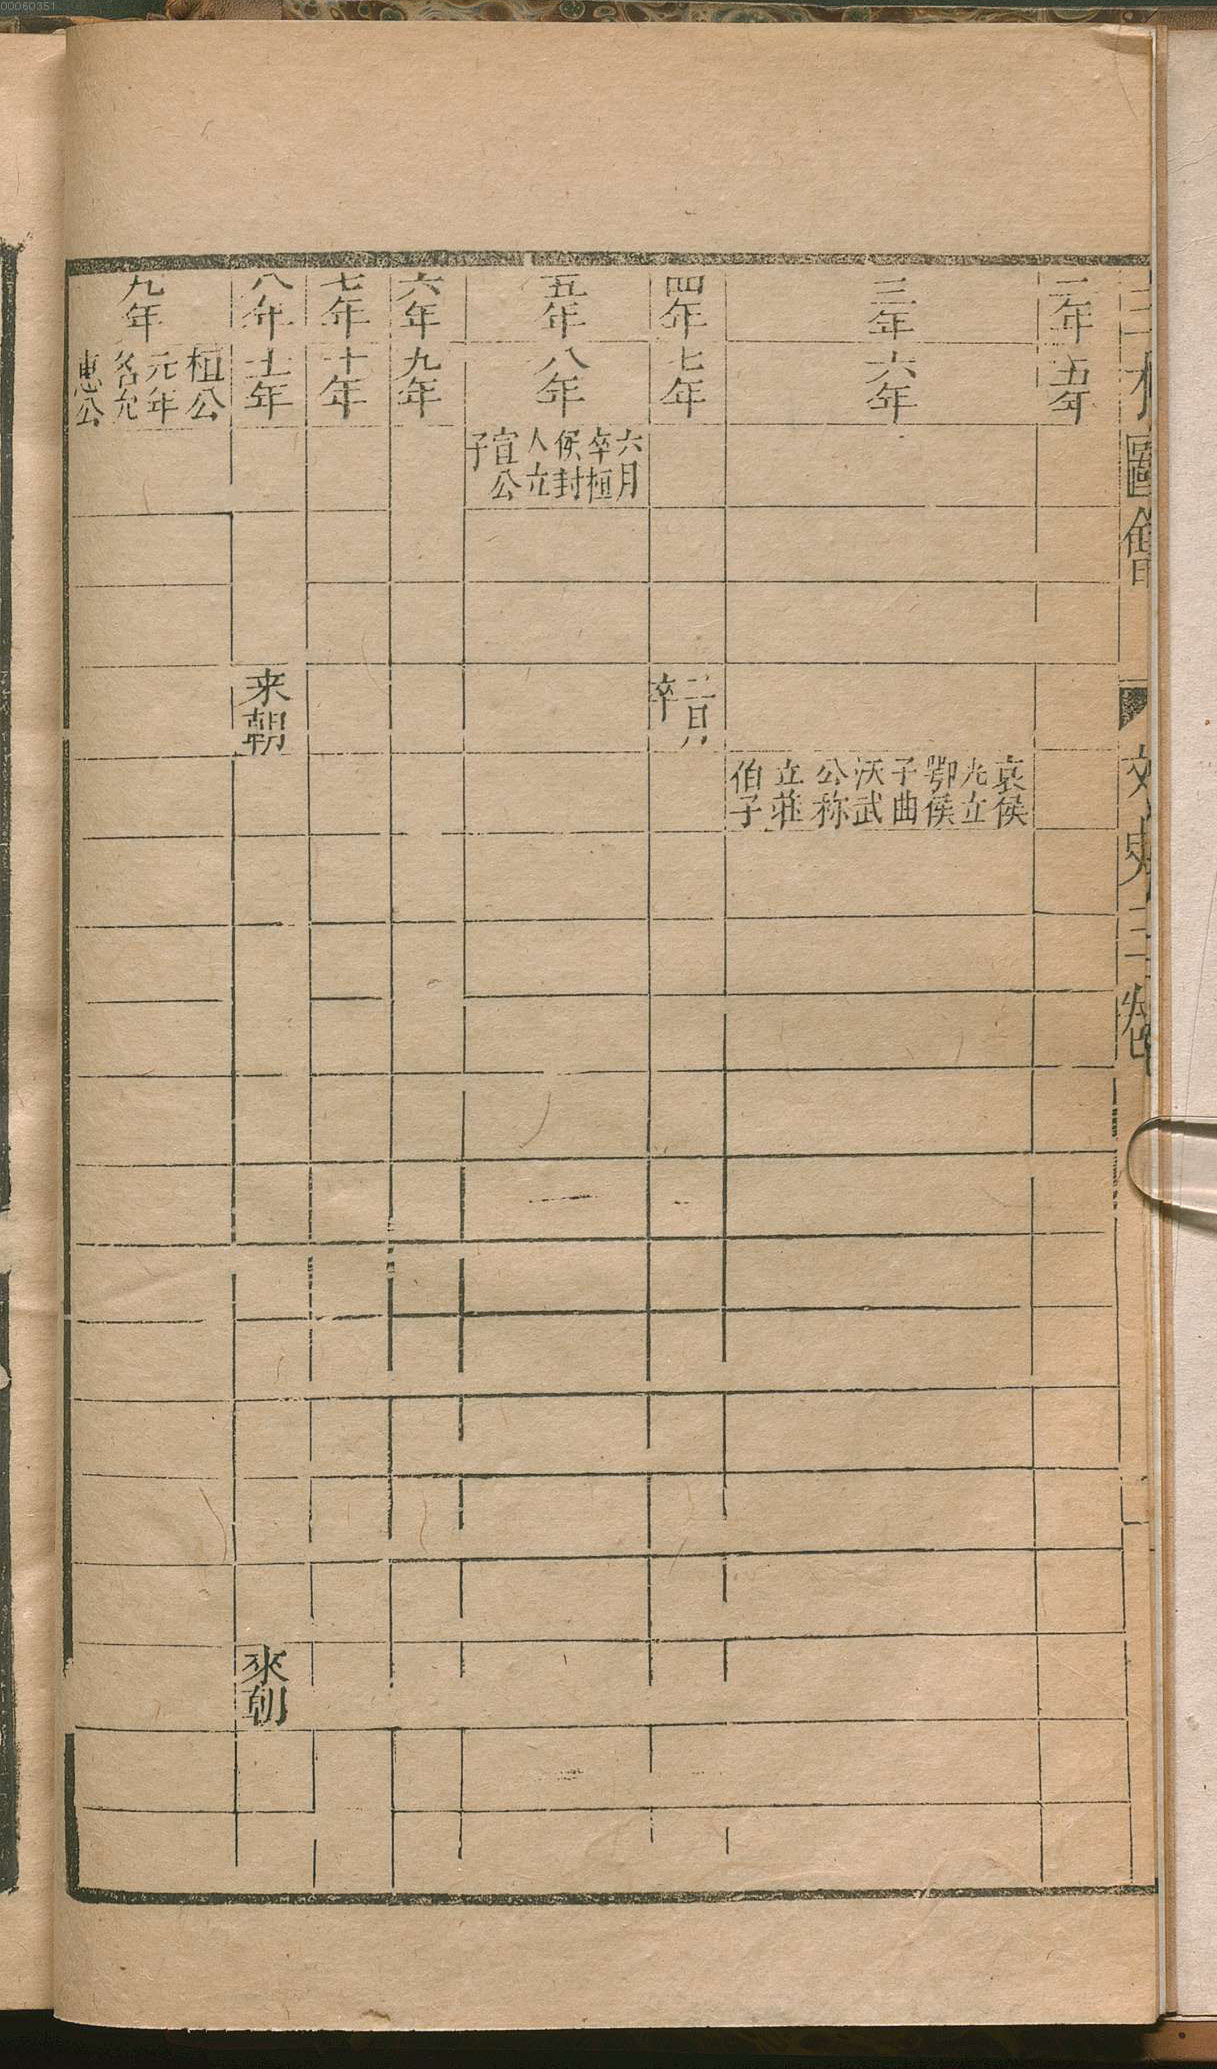 00060351
二年
五年
三年
六年
哀侯
光立
鄂侯
子曲
沃武
公称
立莊
伯子
四年
七年
卒
五年
八年
六月
卒桓
侯封
人立
宣公
子
六年
九年
七年
十年
八年
十一年
来朝
來朝
九年
桓公
元年
名允
惠公